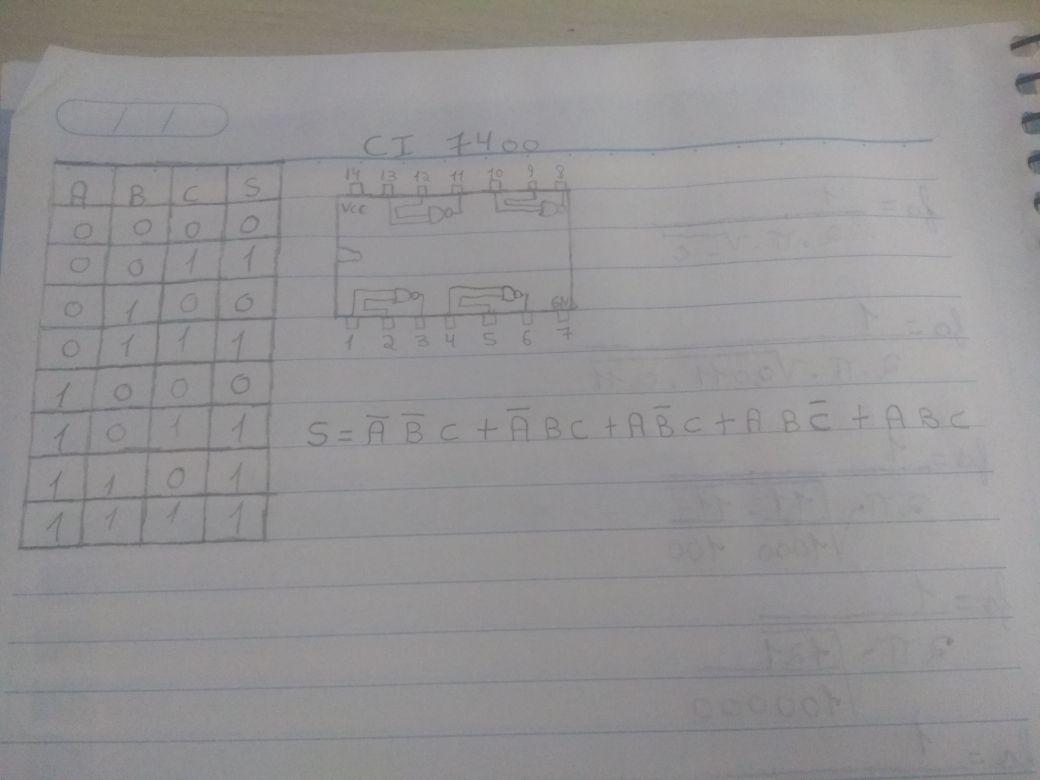 CI 7400
A B C S
0 0 0 0
0 0 1 1
0 1 0 0
0 1 1 1
1 0 0 0
1 0 1 1
1 1 0 1
1 1 1 1
14 13 12 11 10 9 8
Vcc
GND
1 2 3 4 5 6 7
S = A̅ B̅ C + A̅ B C + A B̅ C + A B C̅ + A B C